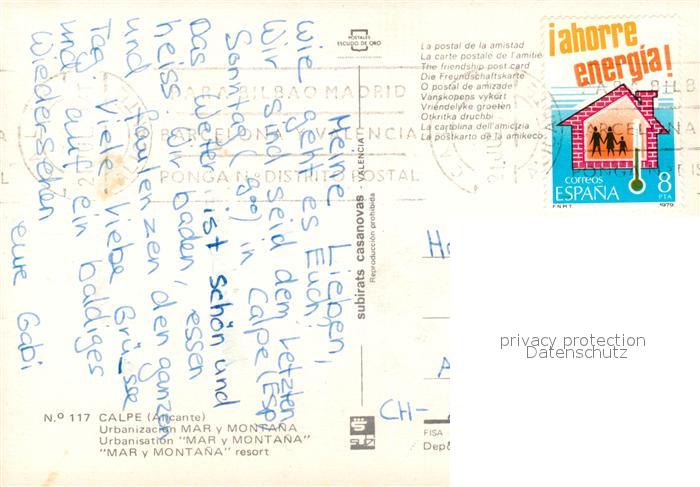 Meine Lieben,
wie geht es Euch,
Wir sind seid dem letzten
Sonntag in Calpe (Esp)
Das Wetter ist schön und
heiss. Wir baden, essen
und faulenzen den ganzen
Tag. Viele liebe Grüsse
und auf ein baldiges
Wiedersehen eure Gabi
POSTALES
ESCUDO DE ORO
La postal de la amistad
La carte postale de l'amitié
The friendship post card
Die Freundschaftskarte
O postal de amizade
Vanskopens vykort
Vriendelyke groeten
Otkritka druchbi
La cartolina dell'amicizia
La postkarto de la amikeco
PARA BILBAO MADRID
BARCELONA Y VALENCIA
PONGA Nº DISTRITO POSTAL
¡ahorre
energía!
correos
ESPAÑA
8
PTA
F.N.M.T.
1979
subirats casanovas - VALENCIA
Reproducción prohibida
privacy protection
Datenschutz
CH-
N.º 117 CALPE (Alicante)
Urbanización MAR y MONTAÑA
Urbanisation "MAR y MONTAÑA"
"MAR y MONTAÑA" resort
FISA
Dep